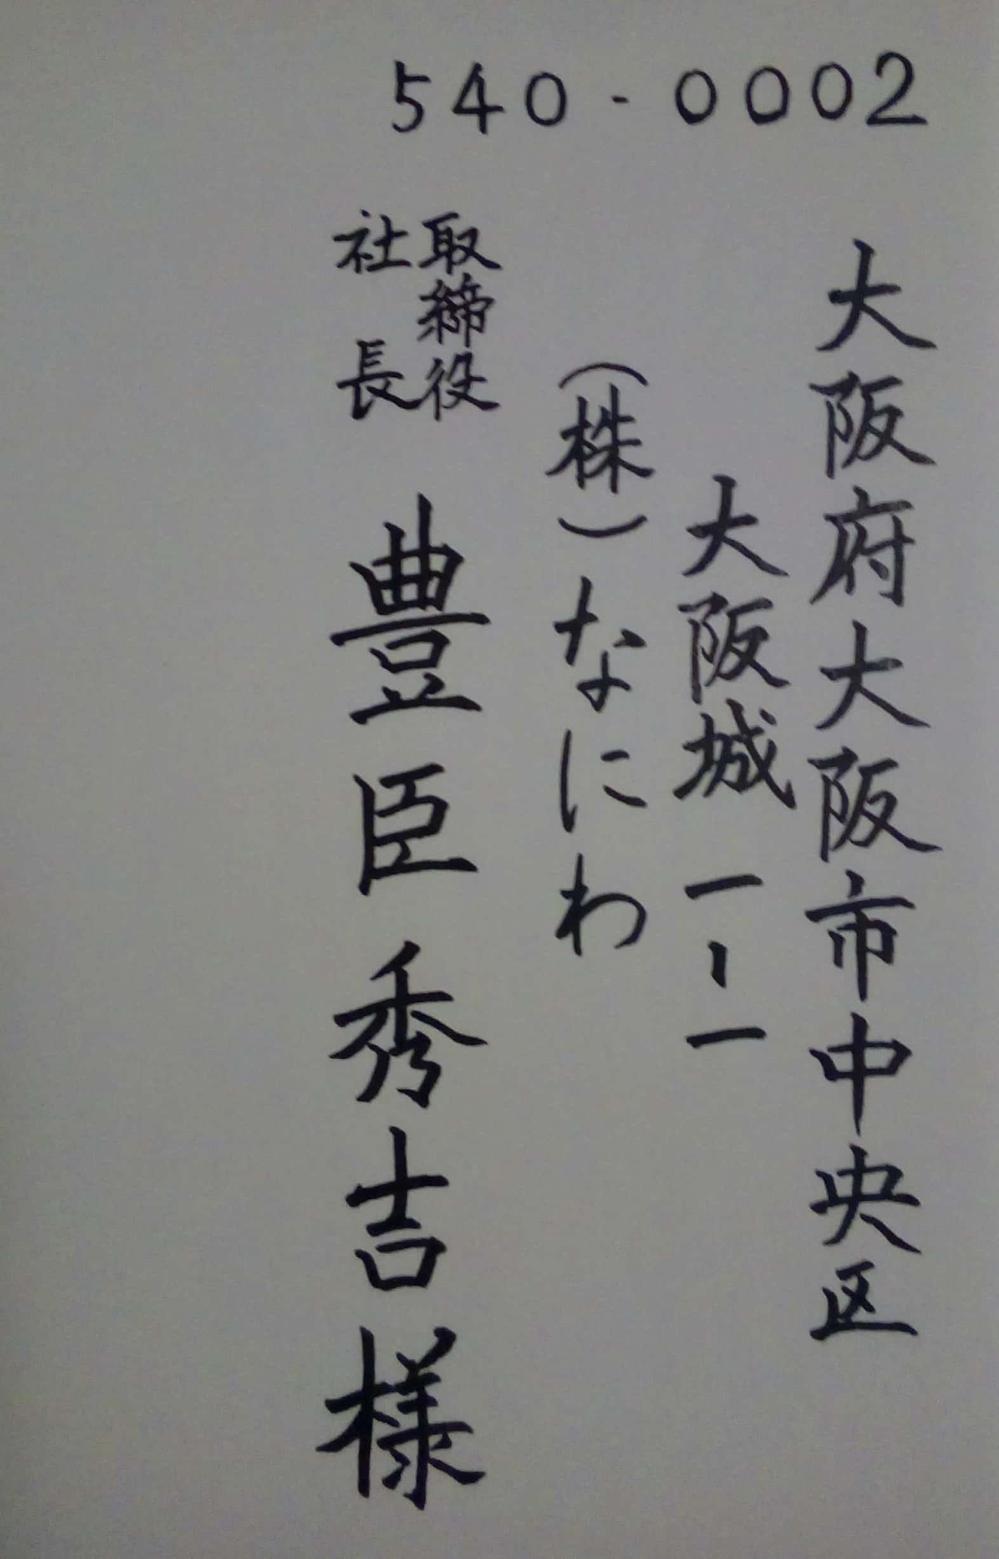 540-0002
大阪府大阪市中央区
大阪城 一-一
(株)なにわ
取締役
社長
豊臣秀吉様